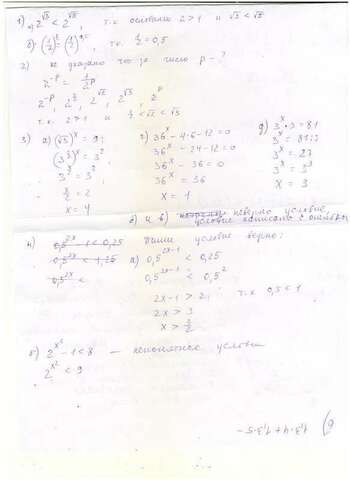 1) а) 2^√3 < 2^√5, т.к. основание 2 > 1 и √3 < √5
б) (1/2) (1/2), т.к. 1/2 = 0,5
2) не указано что за число p - ?
2^-p = 1/2^p
2^-p, 2^, 2^√2, 2^√3, 2^p
т.к. 2 > 1 и < √2 < √3
3) а) (√3)^x = 9;
(3^1/2)^x = 3^2
3^x/2 = 3^2
x/2 = 2
x = 4
г) 36^x - 4·6 - 12 = 0
36^x - 24 - 12 = 0
36^x - 36 = 0
36^x = 36
x = 1
д) 3^x · 3 = 81
3^x = 81:3
3^x = 27
3^x = 3^3
x = 3
и в) неверно условие
условие написано с ошибкой
4) 0,5^2x - 1 < 0,25
0,5^2x < 1,25
0,5^2x <
Пиши условие верно:
а) 0,5^2x-1 < 0,25
0,5^2x-1 < 0,5^2
2x-1 > 2, т.к. 0,5 < 1
2x > 3
x > 3/2
б) 2^x² - 1 < 8 — условие
2^x² < 9
6) 1,3·4 + 1,3·5 -